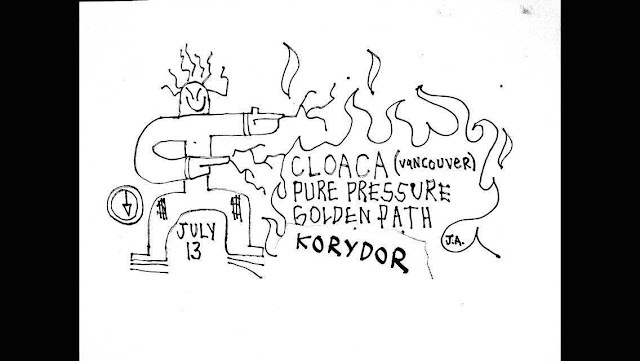 CLOACA (VANCOUVER)
PURE PRESSURE
GOLDEN PATH
KORYDOR
JULY
13
J.A.